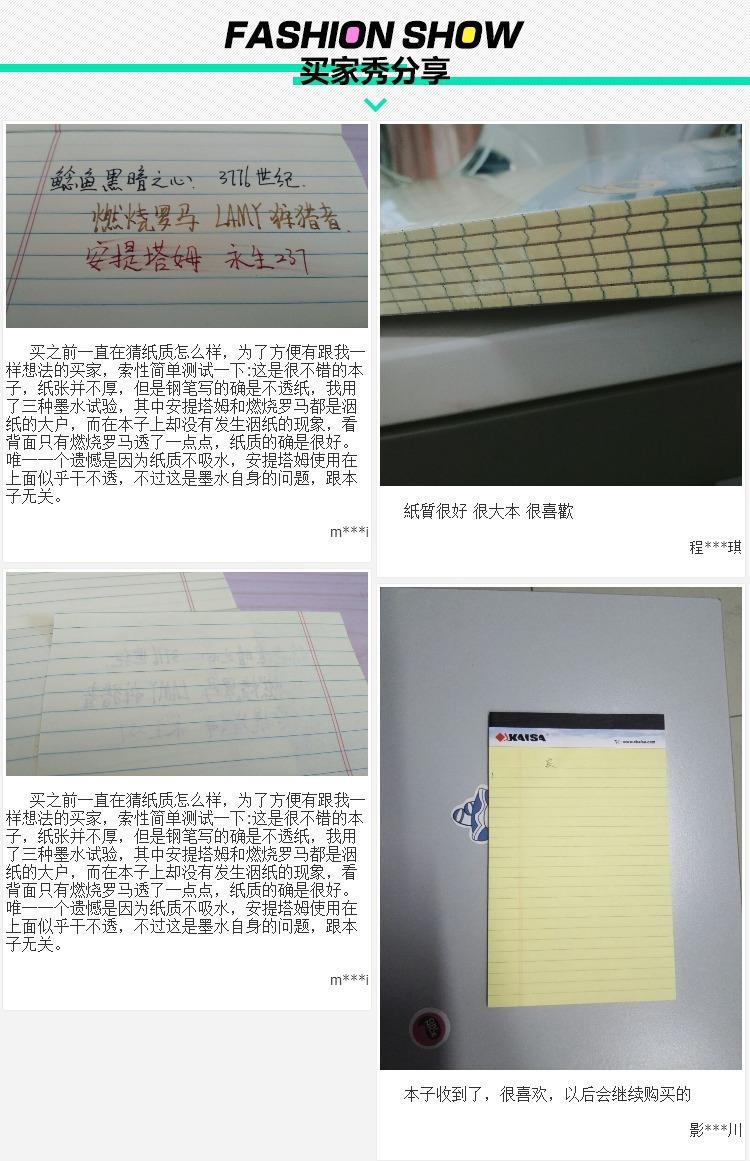 FASHION SHOW
买家秀分享
鲶鱼黑暗之心 3776世纪
燃烧罗马 LAMY 狩猎者
安提塔姆 永生237
买之前一直在猜纸质怎么样，为了方便有跟我一
样想法的买家，索性简单测试一下:这是很不错的本
子，纸张并不厚，但是钢笔写的确是不透纸，我用
了三种墨水试验，其中安提塔姆和燃烧罗马都是洇
纸的大户，而在本子上却没有发生洇纸的现象，看
背面只有燃烧罗马透了一点点，纸质的确是很好。
唯一一个遗憾是因为纸质不吸水，安提塔姆使用在
上面似乎干不透，不过这是墨水自身的问题，跟本
子无关。
m***i
紙質很好 很大本 很喜歡
程***琪
买之前一直在猜纸质怎么样，为了方便有跟我一
样想法的买家，索性简单测试一下:这是很不错的本
子，纸张并不厚，但是钢笔写的确是不透纸，我用
了三种墨水试验，其中安提塔姆和燃烧罗马都是洇
纸的大户，而在本子上却没有发生洇纸的现象，看
背面只有燃烧罗马透了一点点，纸质的确是很好。
唯一一个遗憾是因为纸质不吸水，安提塔姆使用在
上面似乎干不透，不过这是墨水自身的问题，跟本
子无关。
m***i
KAISA
本子收到了，很喜欢，以后会继续购买的
影***川